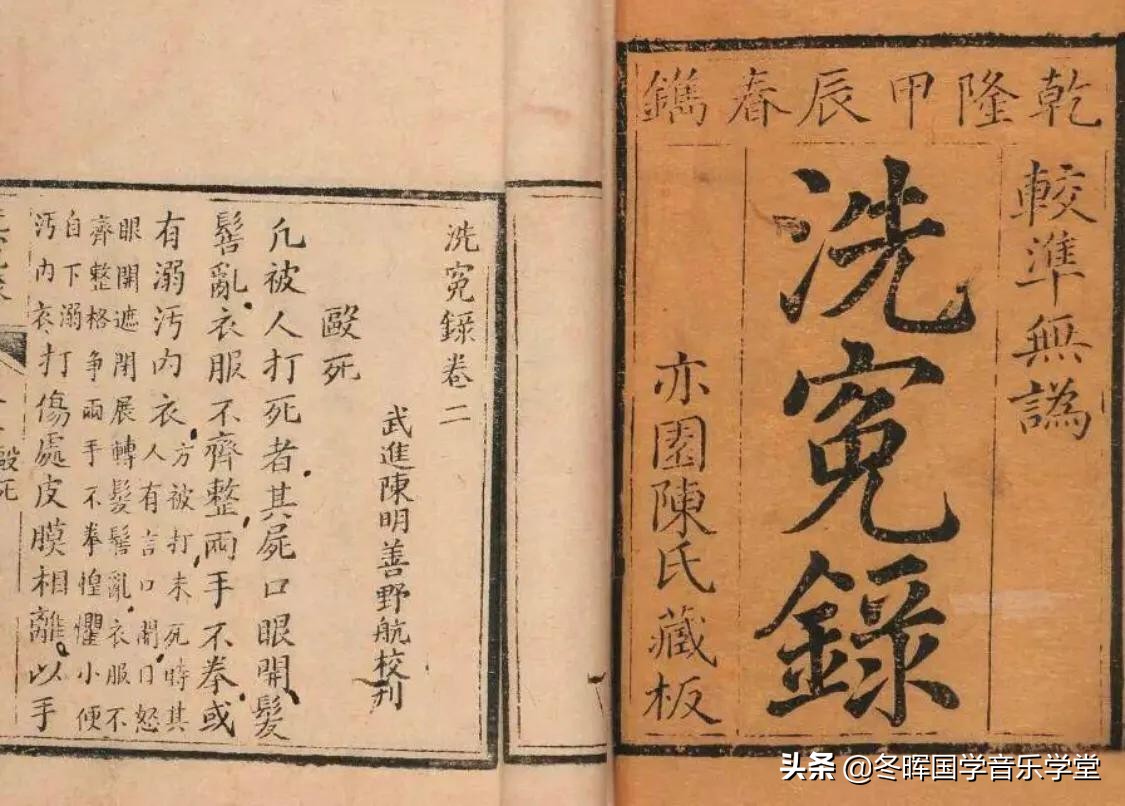 乾隆甲辰春鐫
較準無譌
洗寃錄
亦園陳氏藏板
洗寃錄卷二
武進陳明善野航校刊
毆死
凡被人打死者其屍口眼開髮
髻亂衣服不齊整兩手不拳或
有溺汚內衣
方被打未死時其
人有言口開目怒
眼開遮閉展轉髮髻亂衣服不
齊整格爭兩手不拳惶懼小便
自下溺
汚內衣
打傷處皮膜相離以手
毆死
头条 @冬晖国学音乐学堂